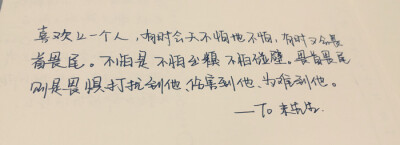 喜欢上一个人，有时会天不怕地不怕，有时又会畏
首畏尾。不怕是不怕出糗不怕碰壁。畏首畏尾
则是畏惧打扰到他、伤害到他、为难到他。
——To